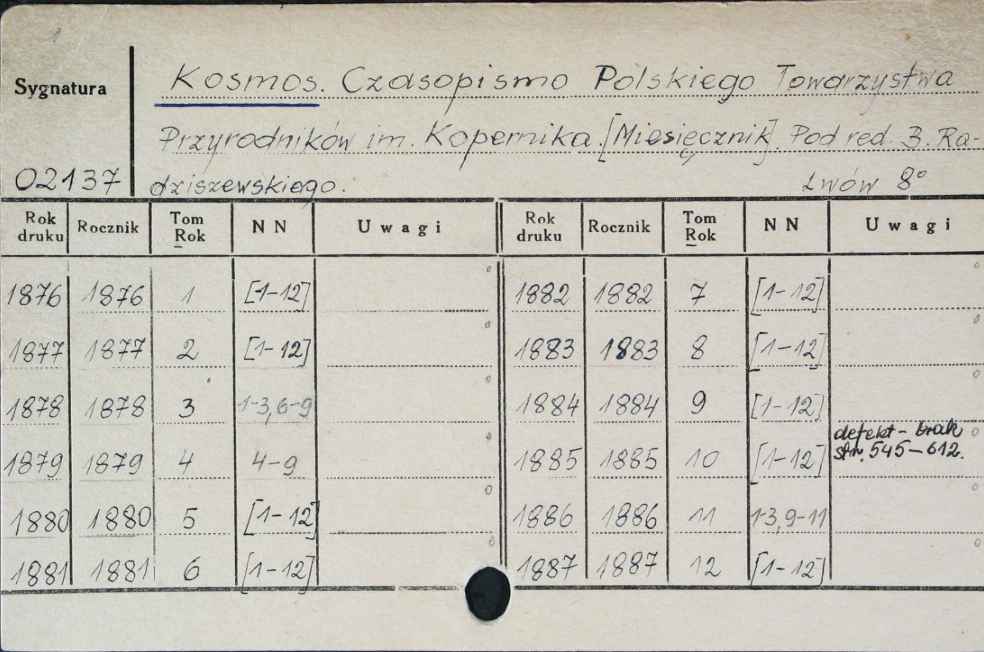 Kosmos. Czasopismo Polskiego Towarzystwa
Sygnatura
Przyrodników im. Kopernika. [Miesięcznik]. Pod red. B. Ra-
02137 dziszewskiego. Lwów 8°
Rok druku Rocznik Tom Rok NN Uwagi Rok druku Rocznik Tom Rok NN Uwagi
1876 1876 1 [1-12] 1882 1882 7 [1-12]
1877 1877 2 [1-12] 1883 1883 8 [1-12]
1878 1878 3 1-3,6-9 1884 1884 9 [1-12]
1879 1879 4 4-9 1885 1885 10 [1-12] defekt - brak str. 545-612.
1880 1880 5 [1-12] 1886 1886 11 1-3,9-11
1881 1881 6 [1-12] 1887 1887 12 [1-12]